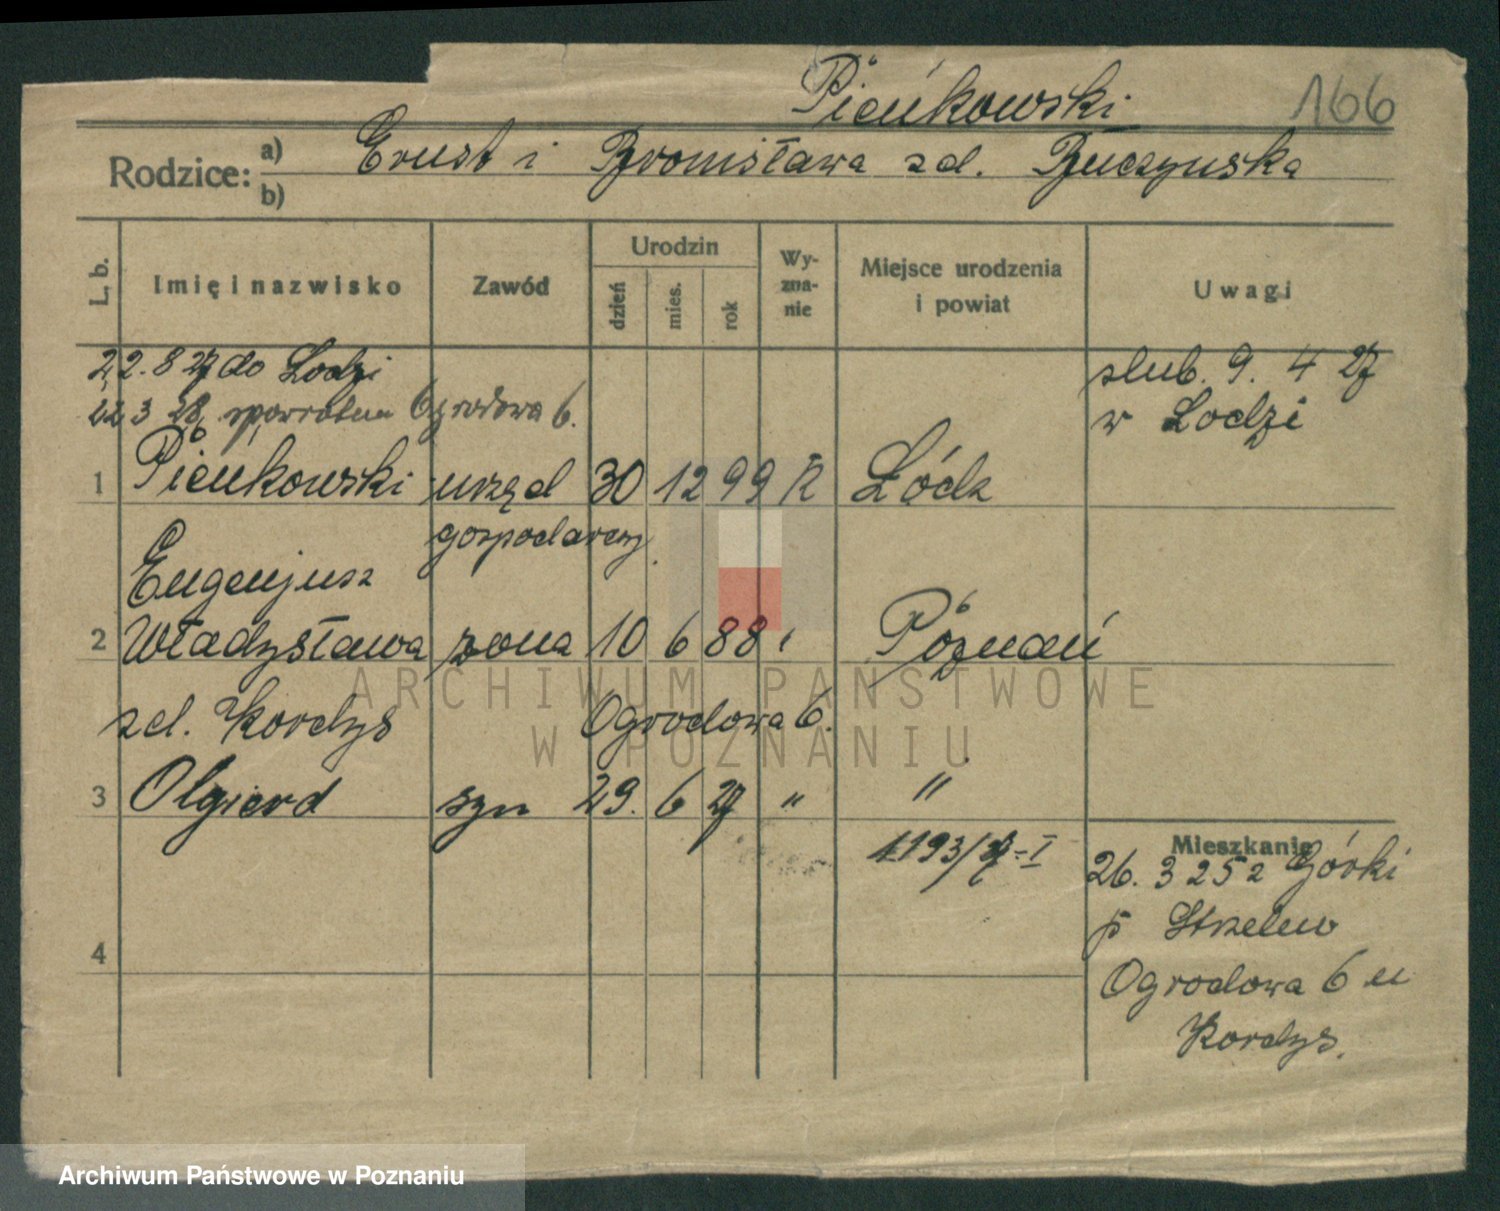 Pieńkowski 166
Rodzice: a) Ernst i Bronisława zd. Buczyńska
b)
L. b. Imię i nazwisko Zawód Urodzin dzień mies. rok Wyznanie Miejsce urodzenia i powiat Uwagi
22. 8 27 do Łodzi
22 3 28 spowrotem Ogrodowa 6.
ślub. 9. 4 27
w Łodzi
1 Pieńkowski urzęd 30 12 99 R Łódz
gospodarczy
Eugenjusz
2 Władysława zona 10 6 88 " Poznań
zd. Kordys Ogrodowa 6.
3 Olgierd syn 29. 6 27 " "
1193/27-I
4
Mieszkanie
26. 3 25 z Górki
p Strzelno
Ogrodowa 6 u
Kordys.
ARCHIWUM PAŃSTWOWE
W POZNANIU
Archiwum Państwowe w Poznaniu